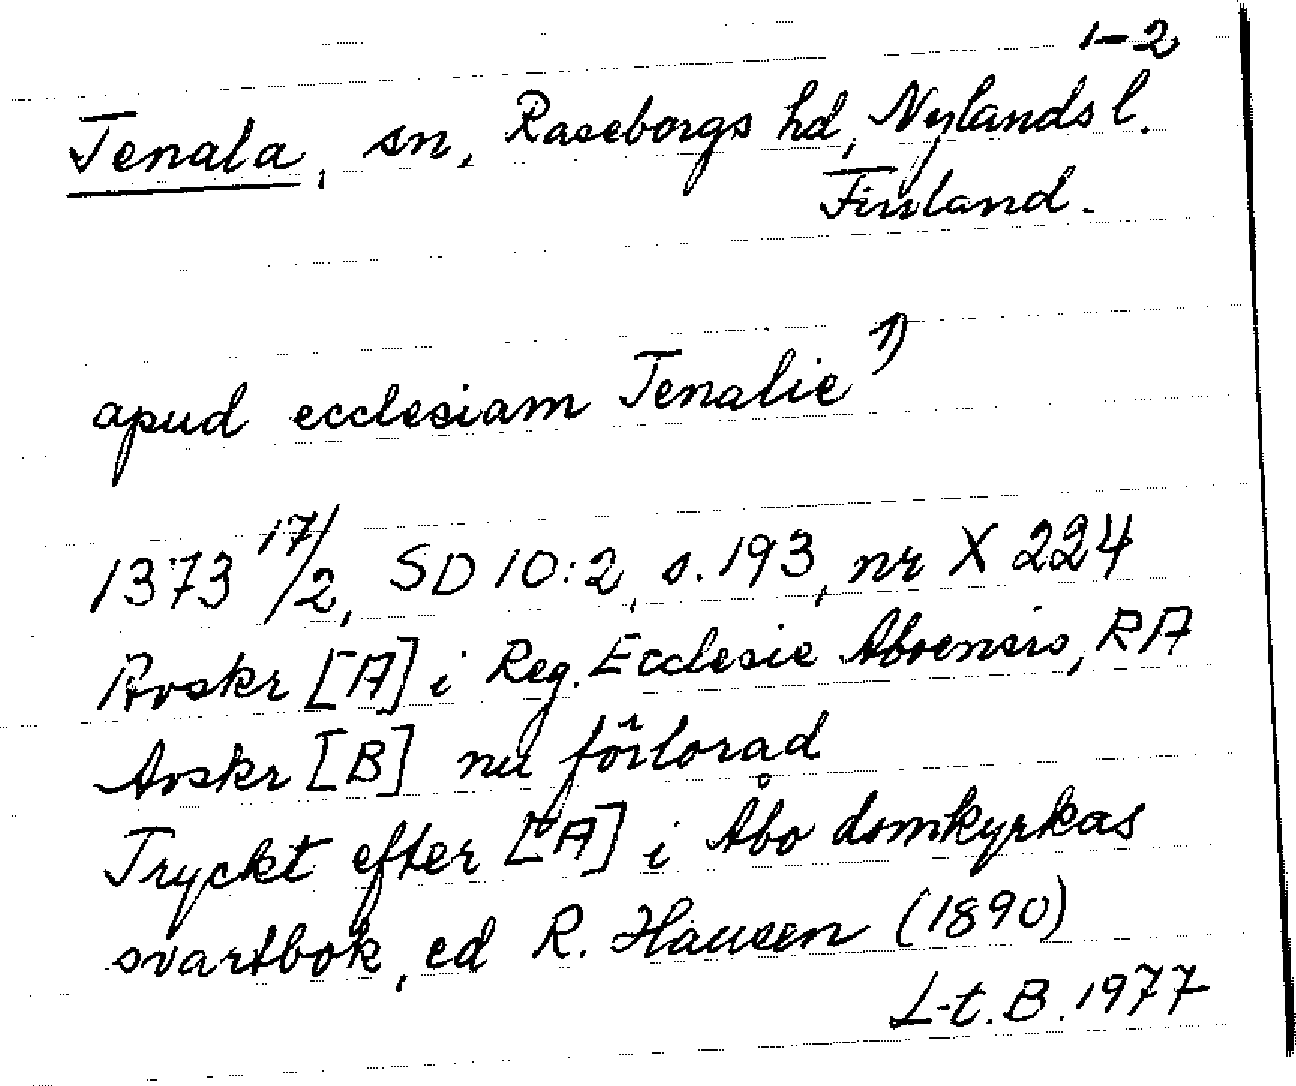 1-2
Tenala, sn, Raseborgs hd, Nylands l.
Finland.
apud ecclesiam Tenalie 1)
1373 17/2, SD 10:2, s. 193, nr X 224
Avskr [A] i Reg. Ecclesie Aboensis, RA
Avskr [B] nu förlorad
Tryckt efter [A] i Åbo domkyrkas
svartbok, ed R. Hausen (1890)
L-t. B. 1977